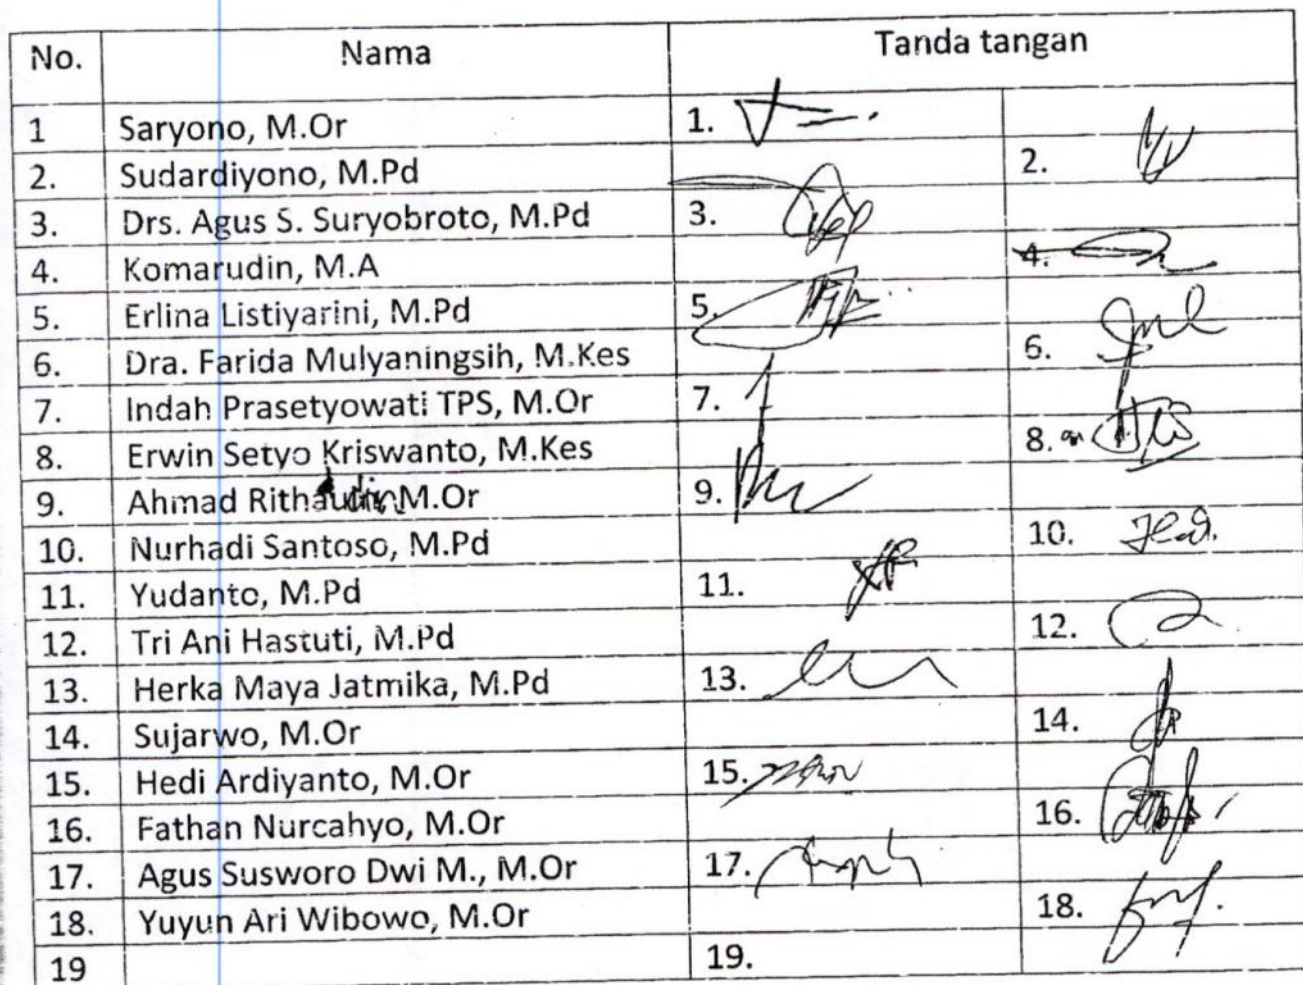 No. Nama Tanda tangan
1 Saryono, M.Or 1.
2. Sudardiyono, M.Pd 2.
3. Drs. Agus S. Suryobroto, M.Pd 3.
4. Komarudin, M.A 4.
5. Erlina Listiyarini, M.Pd 5.
6. Dra. Farida Mulyaningsih, M.Kes 6.
7. Indah Prasetyowati TPS, M.Or 7.
8. Erwin Setyo Kriswanto, M.Kes 8.
9. Ahmad Rithaudin M.Or 9.
10. Nurhadi Santoso, M.Pd 10.
11. Yudanto, M.Pd 11.
12. Tri Ani Hastuti, M.Pd 12.
13. Herka Maya Jatmika, M.Pd 13.
14. Sujarwo, M.Or 14.
15. Hedi Ardiyanto, M.Or 15.
16. Fathan Nurcahyo, M.Or 16.
17. Agus Susworo Dwi M., M.Or 17.
18. Yuyun Ari Wibowo, M.Or 18.
19 19.